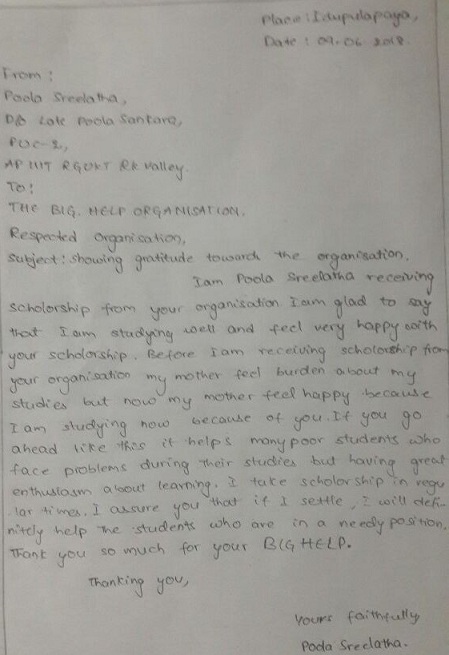 Place: Idupulapaya,
Date: 09.06.2018.
From:
Poola Sreelatha,
D/o Late Poola Sankara,
PUC-2,
AP IIIT RGUKT RK valley.
To:
THE BIG. HELP ORGANISATION.
Respected organisation,
Subject: showing gratitude towards the organisation.
Iam Poola Sreelatha receiving
scholorship from your organisation Iam glad to say
that I am studying well and feel very happy with
your scholorship. Before Iam receiving scholorship from
your organisation my mother feel burden about my
studies but now my mother feel happy because
I am studying now because of you. If you go
ahead like this it helps many poor students who
face problems during their studies but having great
enthusiasm about learning. I take scholorship in regu
lar times. I assure you that if I settle, I will defi-
nitely help the students who are in a needy position.
Thank you so much for your BIG HELP.
Thanking you,
Yours faithfully
Poola Sreelatha.